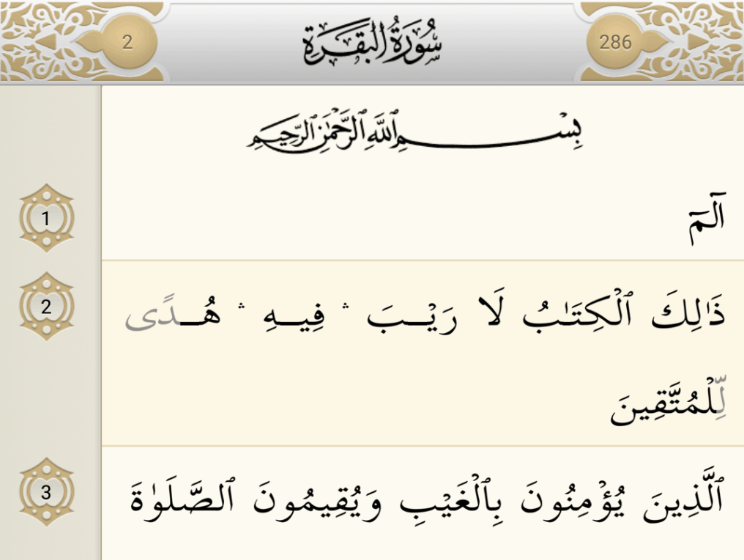 2 سُورَةُ البَقَرَةِ 286
بِسْمِ اللَّهِ الرَّحْمَٰنِ الرَّحِيمِ
1 الٓمٓ
2 ذَٰلِكَ ٱلْكِتَـٰبُ لَا رَيْــبَ ۛ فِيــهِ ۛ هُــدًى
لِّلْمُتَّقِينَ
3 ٱلَّذِينَ يُؤْمِنُونَ بِٱلْغَيْبِ وَيُقِيمُونَ ٱلصَّلَوٰةَ